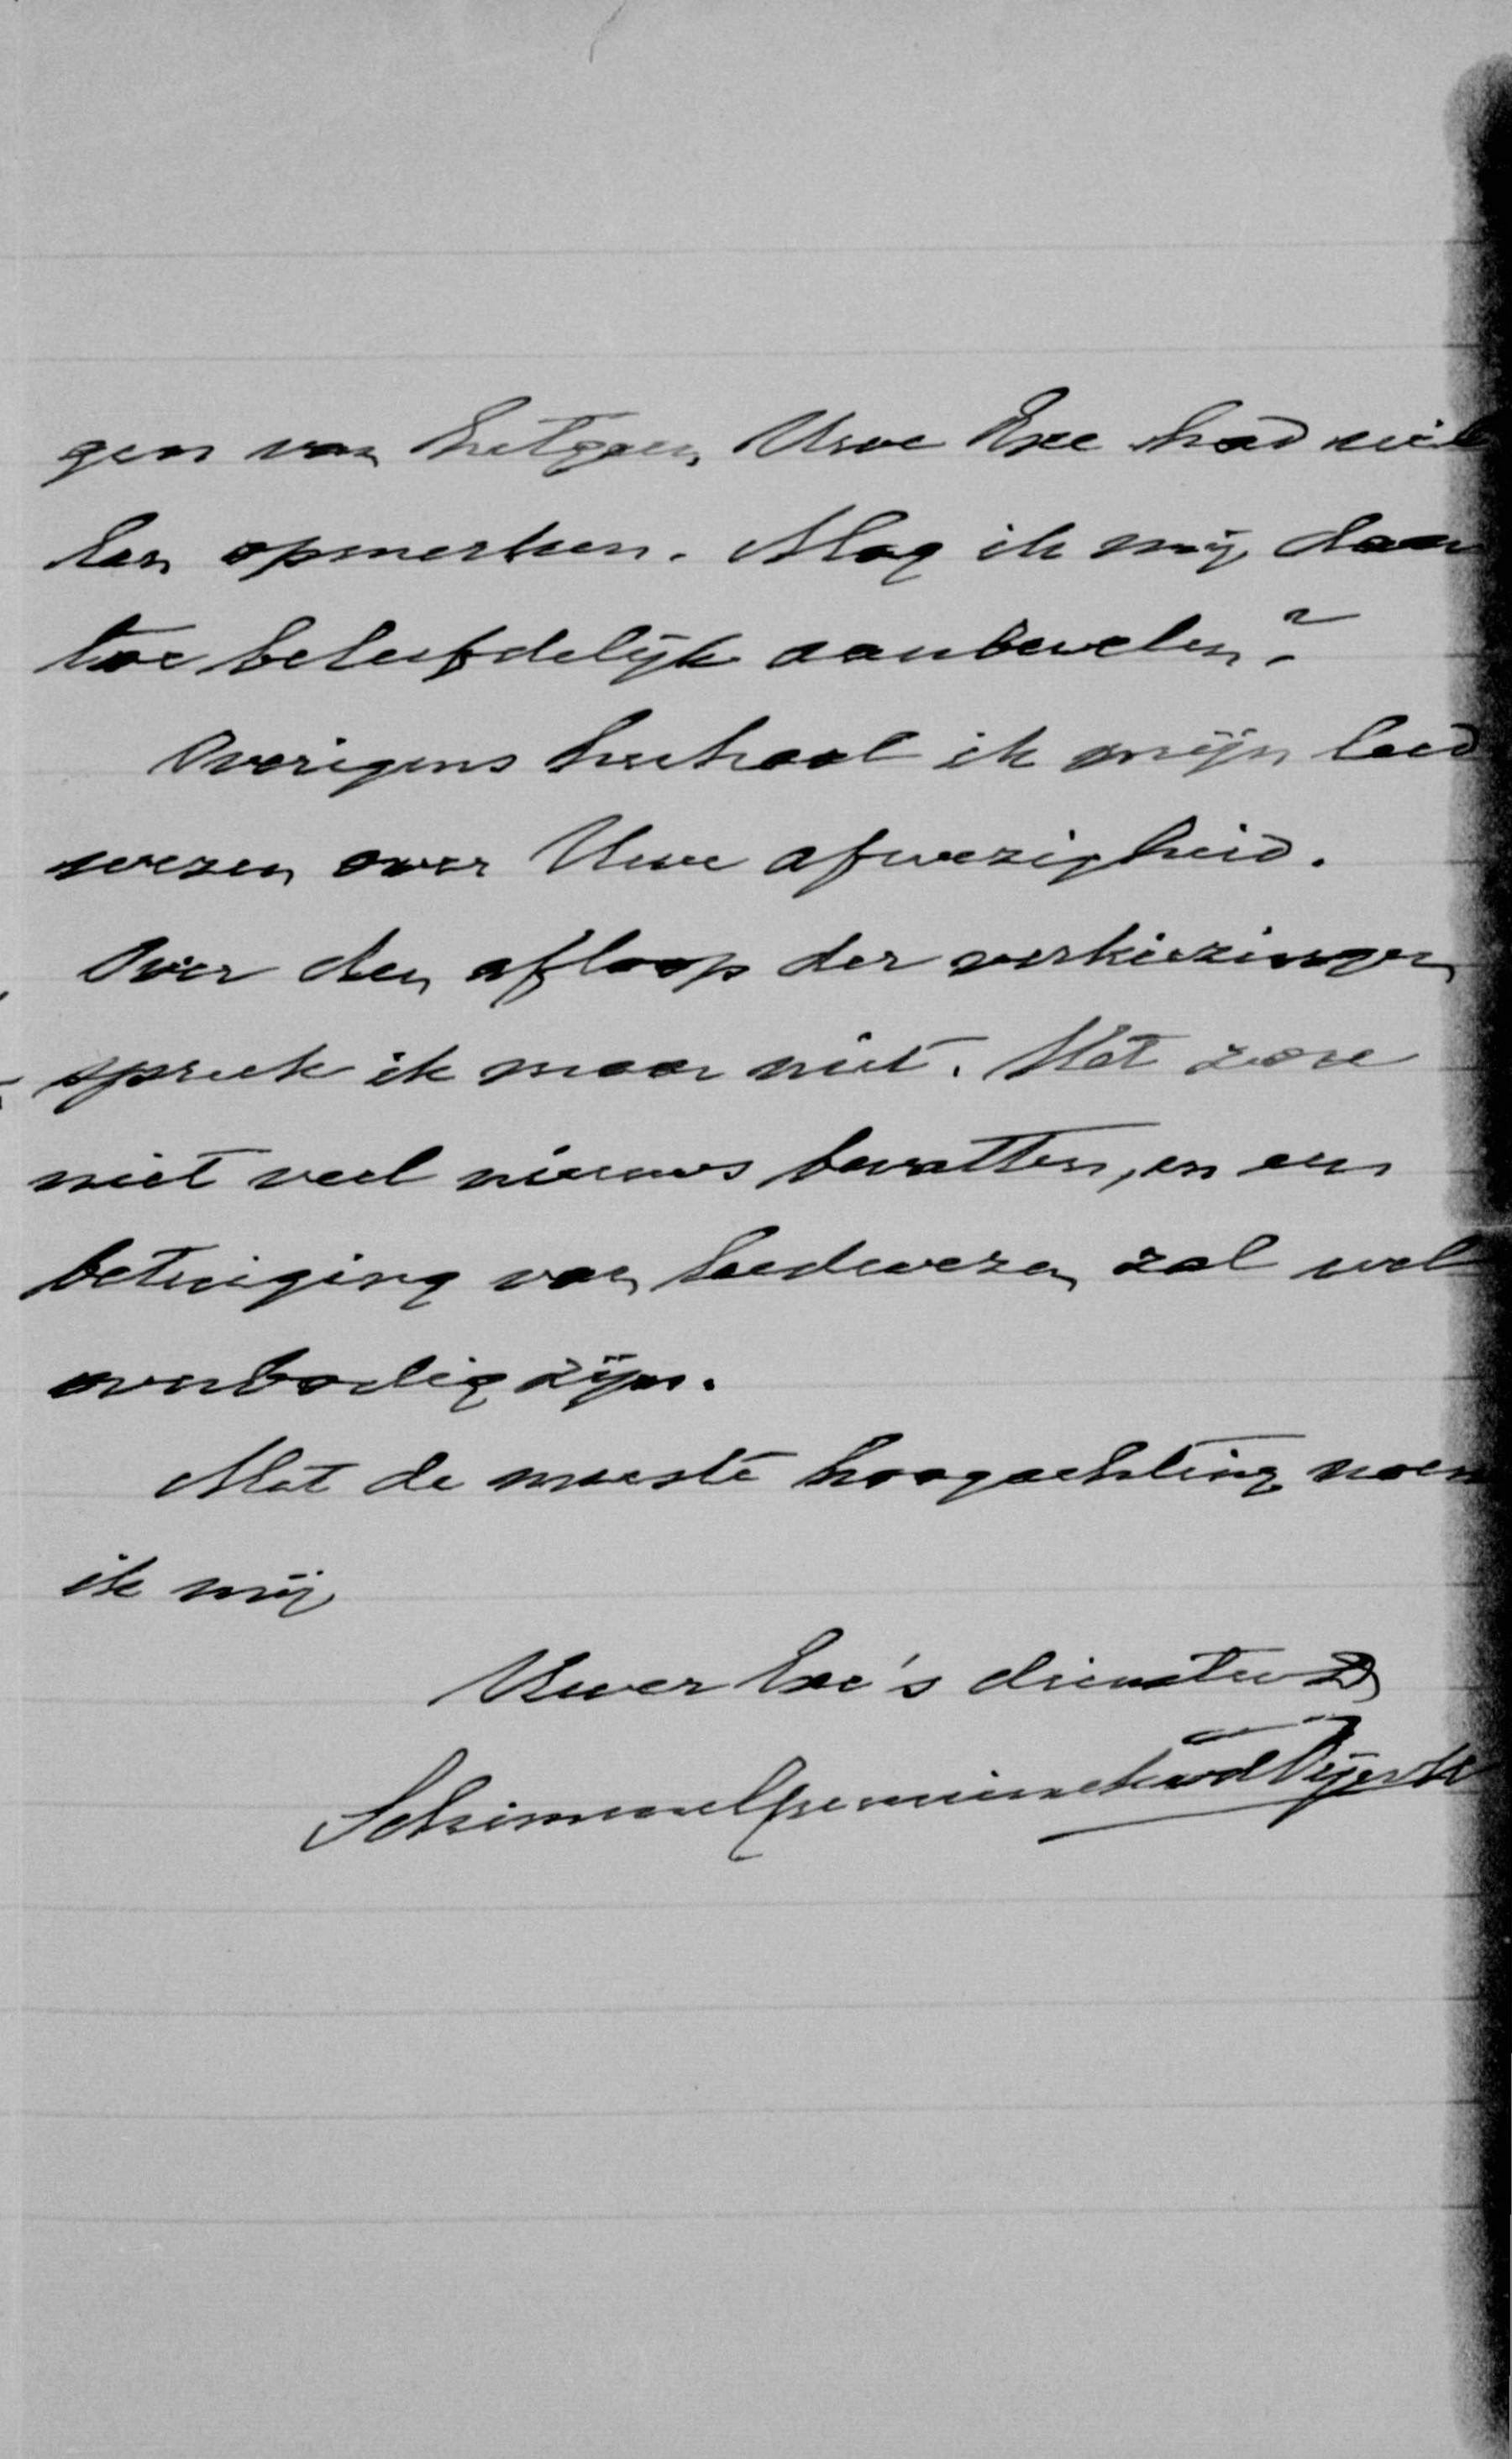 gen van hetgeen Uwe Exc had wil
len opmerken. Mag ik mij daar
toe beleefdelijk aanbevelen?
Overigens herhaal ik mijn leed
wezen over Uwe afwezigheid.
Over den afloop der verkiezingen
spreek ik maar niet. Het zou
niet veel nieuws bevatten, en een
betuiging van leedwezen zal wel
overbodig zijn.
Met de meeste hoogachting noem
ik mij
Uwer Exc's dienstw D
Schimmelpenninck vd Oijen